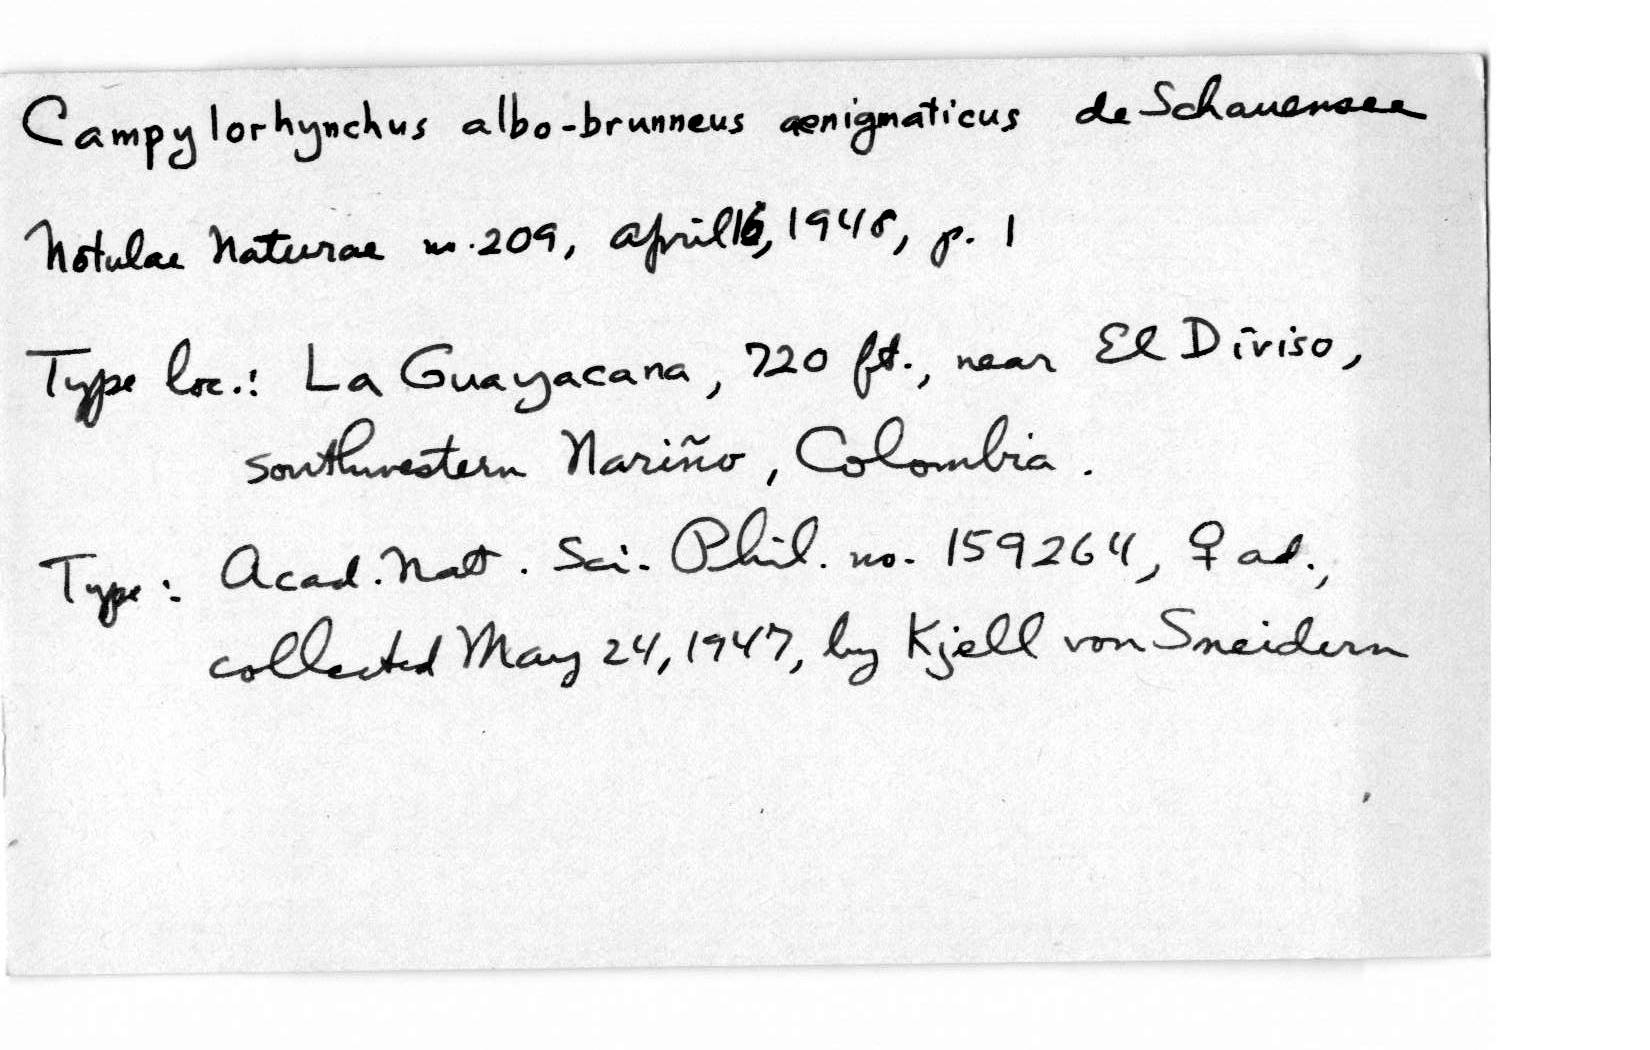 Campylorhynchus albo-brunneus aenigmaticus de Schauensee
Notulae Naturae no. 209, April 16, 1948, p. 1
Type loc.: La Guayacana, 720 ft., near El Diviso,
southwestern Nariño, Colombia.
Type: Acad. Nat. Sci. Phil. no. 159264, ♀ ad.,
collected May 24, 1947, by Kjell von Sneidern